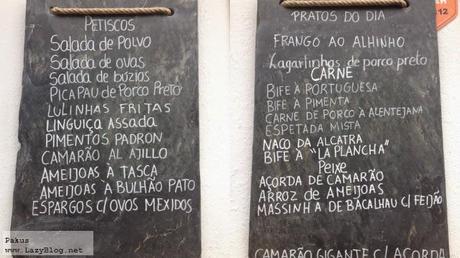 PETISCOS
Salada de POLVO
Salada de ovas
Salada de búzios
PICAPAU de PORCO Preto
LULINHAS FRITAS
LINGUIÇA ASSADA
PIMENTOS PADRON
CAMARÃO AL AJILLO
AMEIJOAS À TASCA
AMEIJOAS À BULHÃO PATO
ESPARGOS C/OVOS MEXIDOS
Pakus
www.LazyBlog.net
PRATOS DO DIA
FRANGO AO ALHINHO
Lagartinhos de porco preto
CARNE
BIFE À PORTUGUESA
BIFE À PIMENTA
CARNE DE PORCO À ALENTEJANA
ESPETADA MISTA
NACO DA ALCATRA
BIFE À "LA PLANCHA"
Peixe
AÇORDA DE CAMARÃO
ARROZ DE AMEIJOAS
MASSINHA DE BACALHAU C/ FEIJÃO
CAMARÃO GIGANTE C/ ACORDA
12